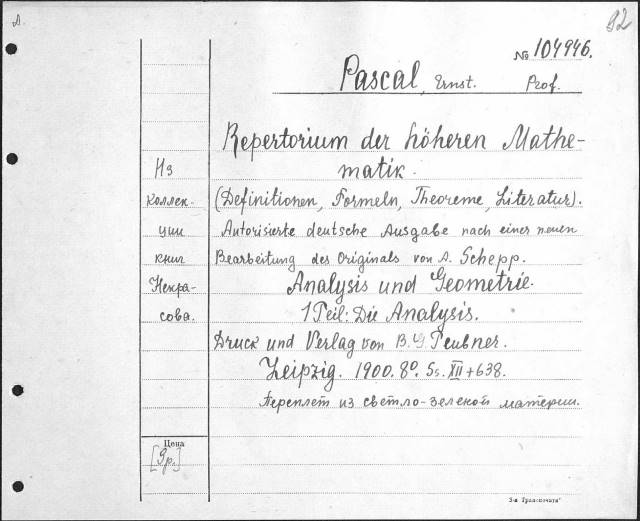 92
№ 104946.
Pascal, Ernst. Prof.
Repertorium der höheren Mathe-
matik.
(Definitionen, Formeln, Theoreme, Literatur).
Autorisierte deutsche Ausgabe nach einer neuen
Bearbeitung des Originals von A. Schepp.
Analysis und Geometrie.
1 Teil: Die Analysis.
Druck und Verlag von B. G. Teubner.
Leipzig. 1900. 8º. Ss. XII + 638.
Переплет из светло-зеленой материи.
Из
коллек-
ции
книг
Некра-
сова.
Цена
[9р.]